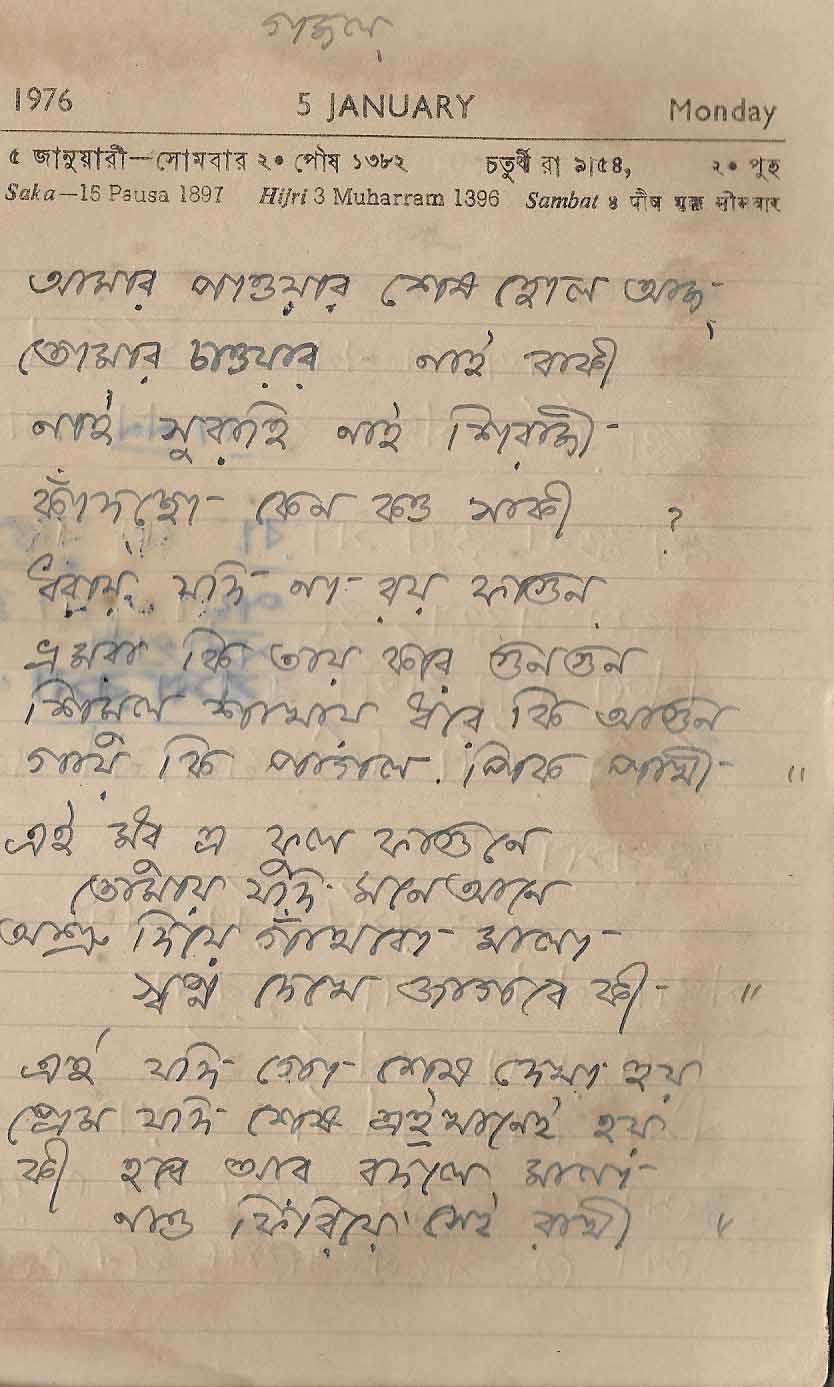 গজল
1976 5 JANUARY Monday
৫ জানুয়ারী—সোমবার ২০ পৌষ ১৩৮২ চতুর্থী রা ৯।৫৪, ২০ পুহ
Saka—15 Pausa 1897 Hijri 3 Muharram 1396 Sambat ४ पौष शुक्ल सोमवार
আমার পাওয়ার শেষ হোল আজ-
তোমার চাওয়ার নাই বাকী
নাই সুরাহি নাই শিরাজী-
কাঁদছো- কেন কও সাকী ?
ধরায় যদি- না- রয় ফাগুন
ভ্রমরা কি তায় করে গুনগুন
শিমুল শাখায় ধরে কি আগুন
গায় কি পাগল পিক পাখী- ॥
এই মধু এ ফুল ফাগুনে
তোমায় যদি মনে আনে
অশ্রু দিয়ে গাঁথবো- মালা-
স্বপ্ন দেখে জাগবে কী- ॥
এই যদি- গো- শেষ দেখা হয়
প্রেম যদি শেষ এইখানেই হয়
কী হবে আর বদলে মালা-
নাও ফিরিয়ে সেই রাখী ॥